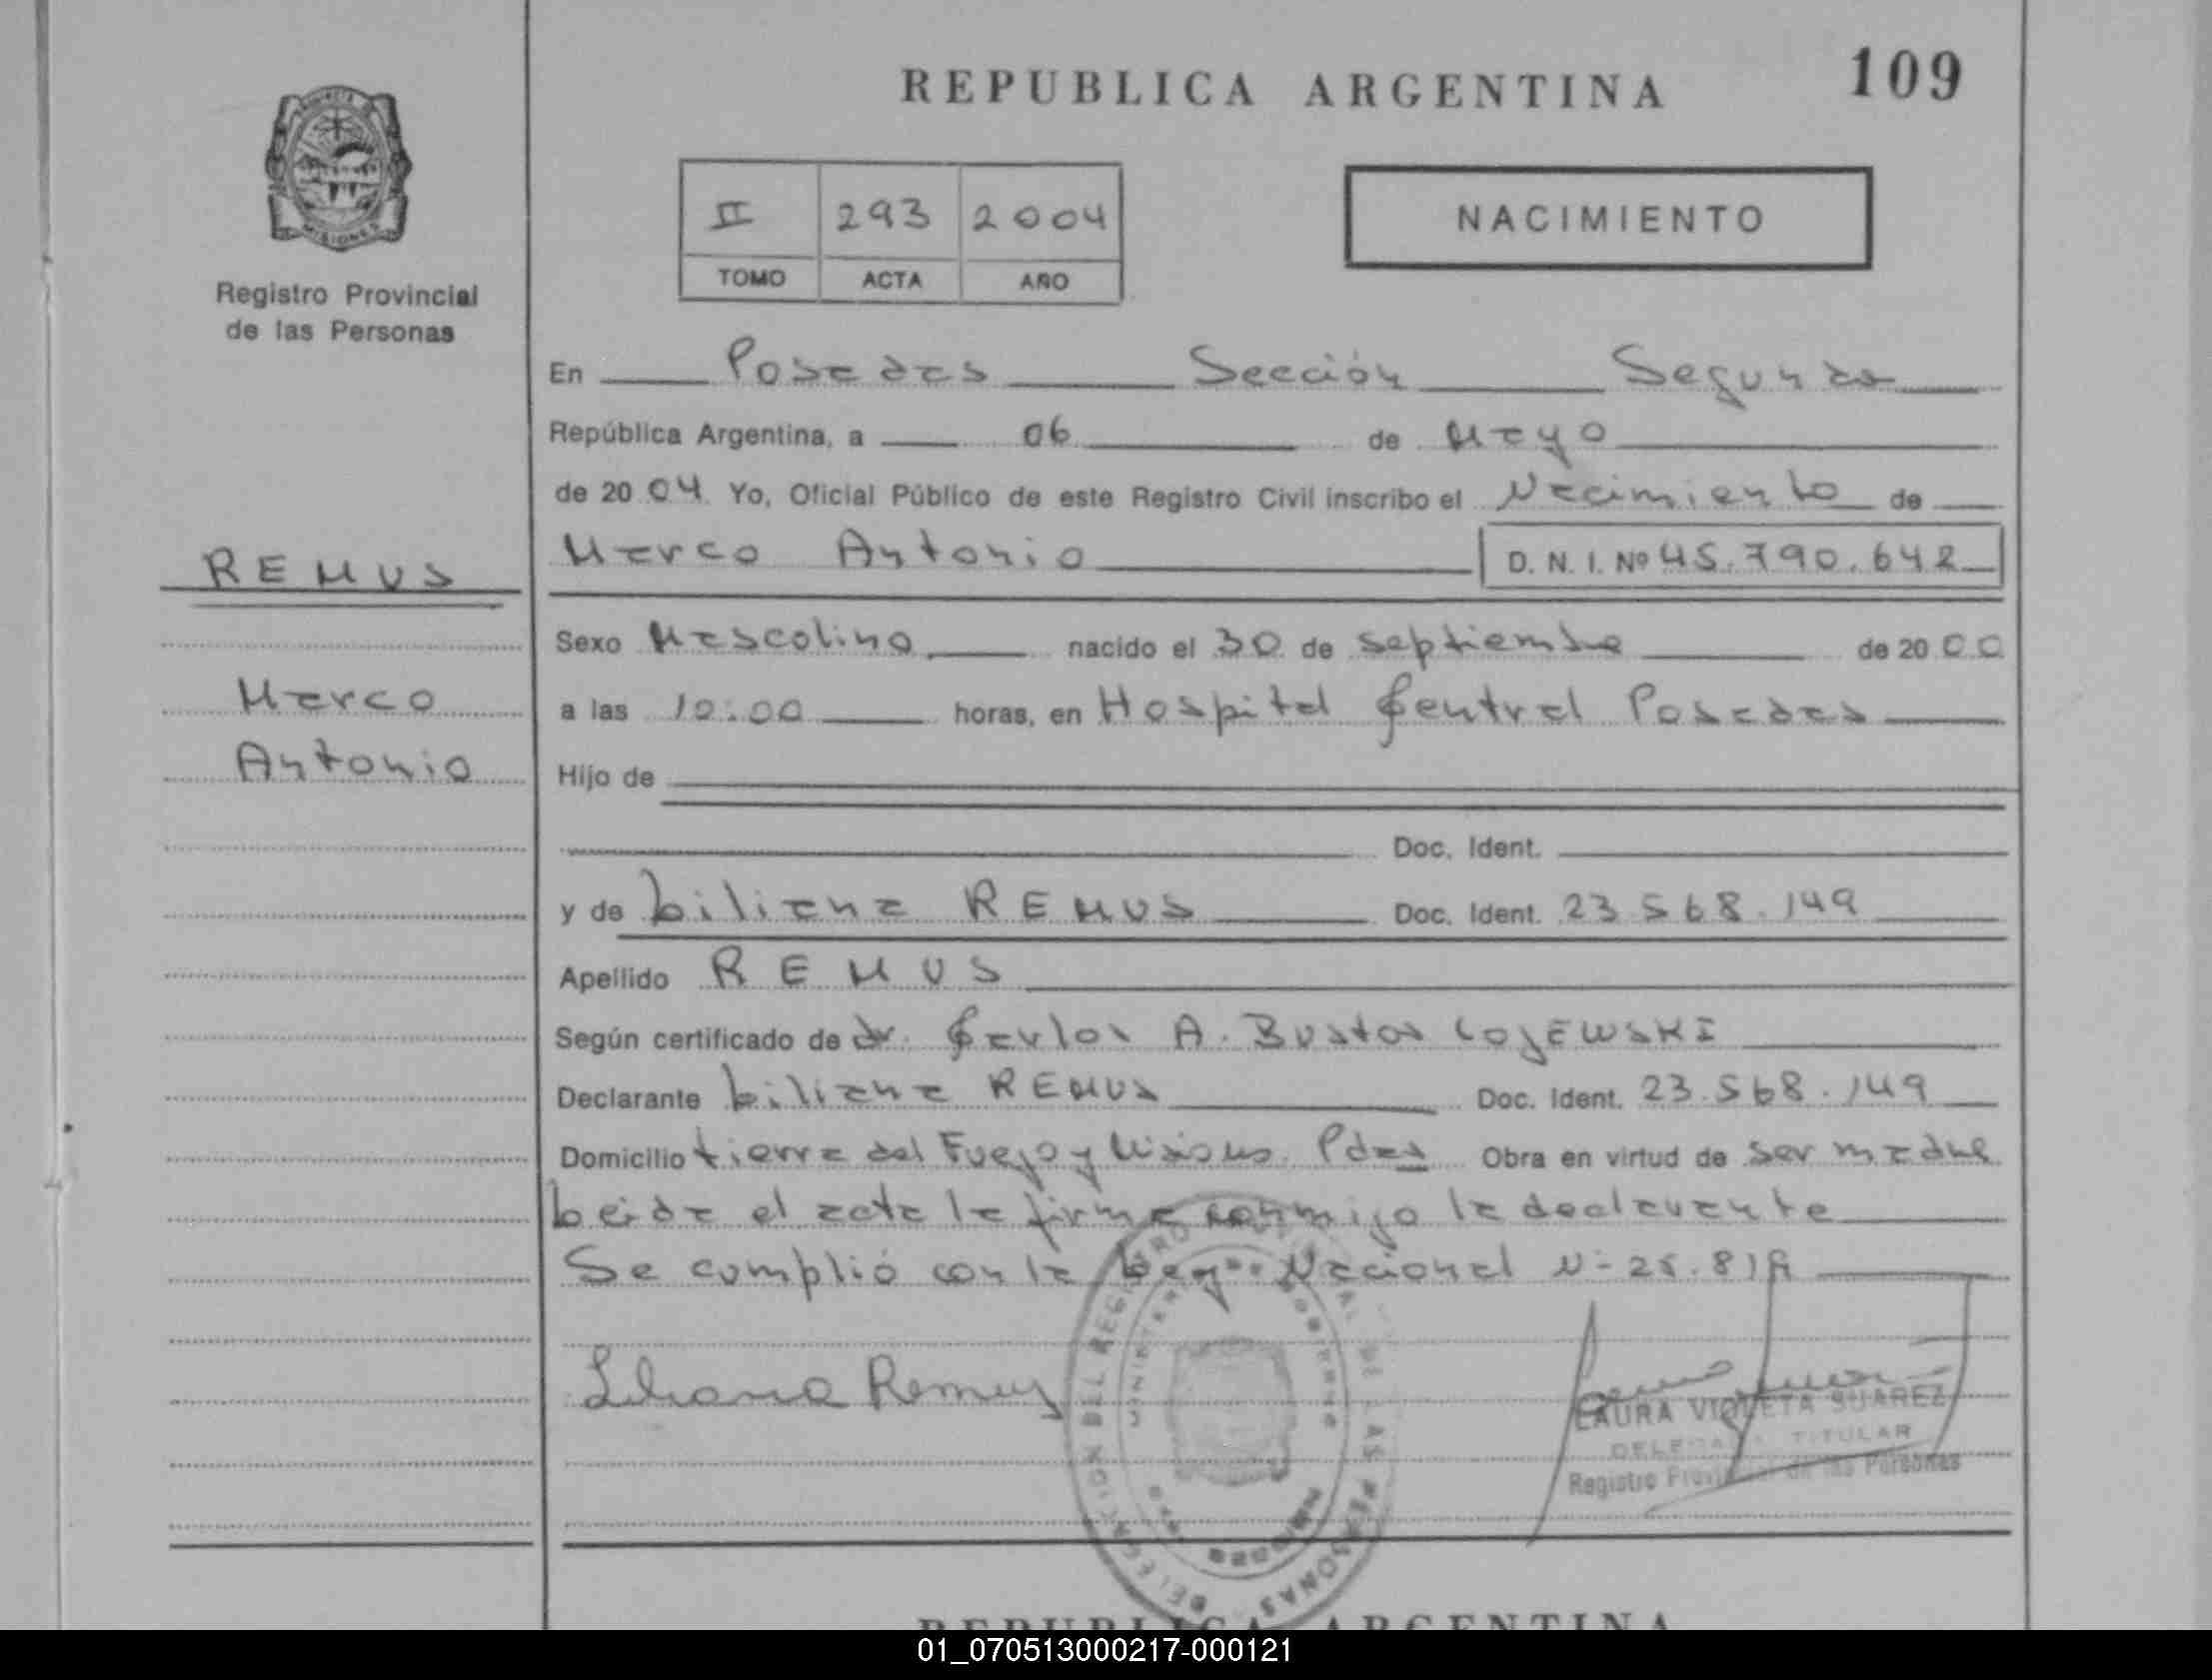 REPUBLICA ARGENTINA
109
MISIONES
Registro Provincial
de las Personas
II 293 2004
TOMO ACTA AÑO
NACIMIENTO
En Posadas Sección Segunda
República Argentina, a 06 de Mayo
de 2004 Yo, Oficial Público de este Registro Civil inscribo el Nacimiento de
Marco Antonio D. N. I. Nº 45.790.642
REMUS
Marco
Antonio
Sexo Mascolino nacido el 30 de septiembre de 2000
a las 10:00 horas, en Hospital Central Posadas
Hijo de
Doc. Ident.
y de Liliana REMUS Doc. Ident. 23.568.149
Apellido REMUS
Según certificado de dr. Carlos A. Bustos LOJEWSKI
Declarante Liliana REMUS Doc. Ident. 23.568.149
Domicilio tierra del Fuego y Misiones Pdas Obra en virtud de ser madre
Leida el acta la firma conmigo la declarante
Se cumplió con la Ley Nacional N- 25.819
Liliana Remus
DELEGACION DEL REGISTRO PROVINCIAL DE LAS PERSONAS
LAURA VIOLETA SUAREZ
DELEGADA TITULAR
Registro Provincial de las Personas
REPUBLICA ARGENTINA
01_070513000217-000121